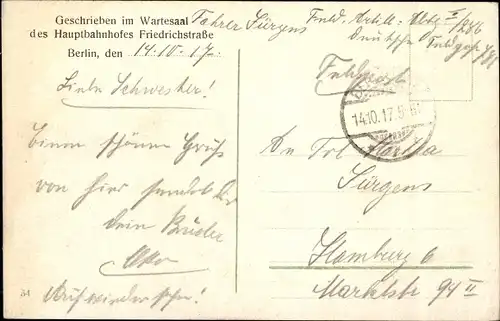 Geschrieben im Wartesaal
des Hauptbahnhofes Friedrichstraße
Berlin, den 14.10.17.
Fahrer Jürgens Feld. Artill.
Deutsche Feldpost
Feldpost
14.10.17.
Liebe Schwester!
Einen schönen Gruß
von hier sendet Dir
dein Bruder
Otto
Auf wiedersehn!
54
An Frl Martha
Jürgens
Hamburg 6
Marktstr 94 II